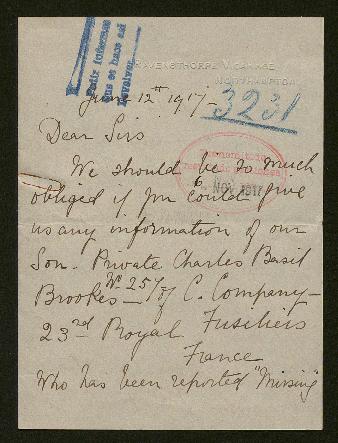 RAVENSTHORPE VICARAGE
NORTHAMPTON
June 12th 1917 -
3231
Dear Sirs
We should be so much
obliged if you could give
us any information of our
Son. Private Charles Basil
Brookes - No 257 of C. Company -
23rd Royal Fusiliers
France
Who has been reported "Missing"
NOV 1917